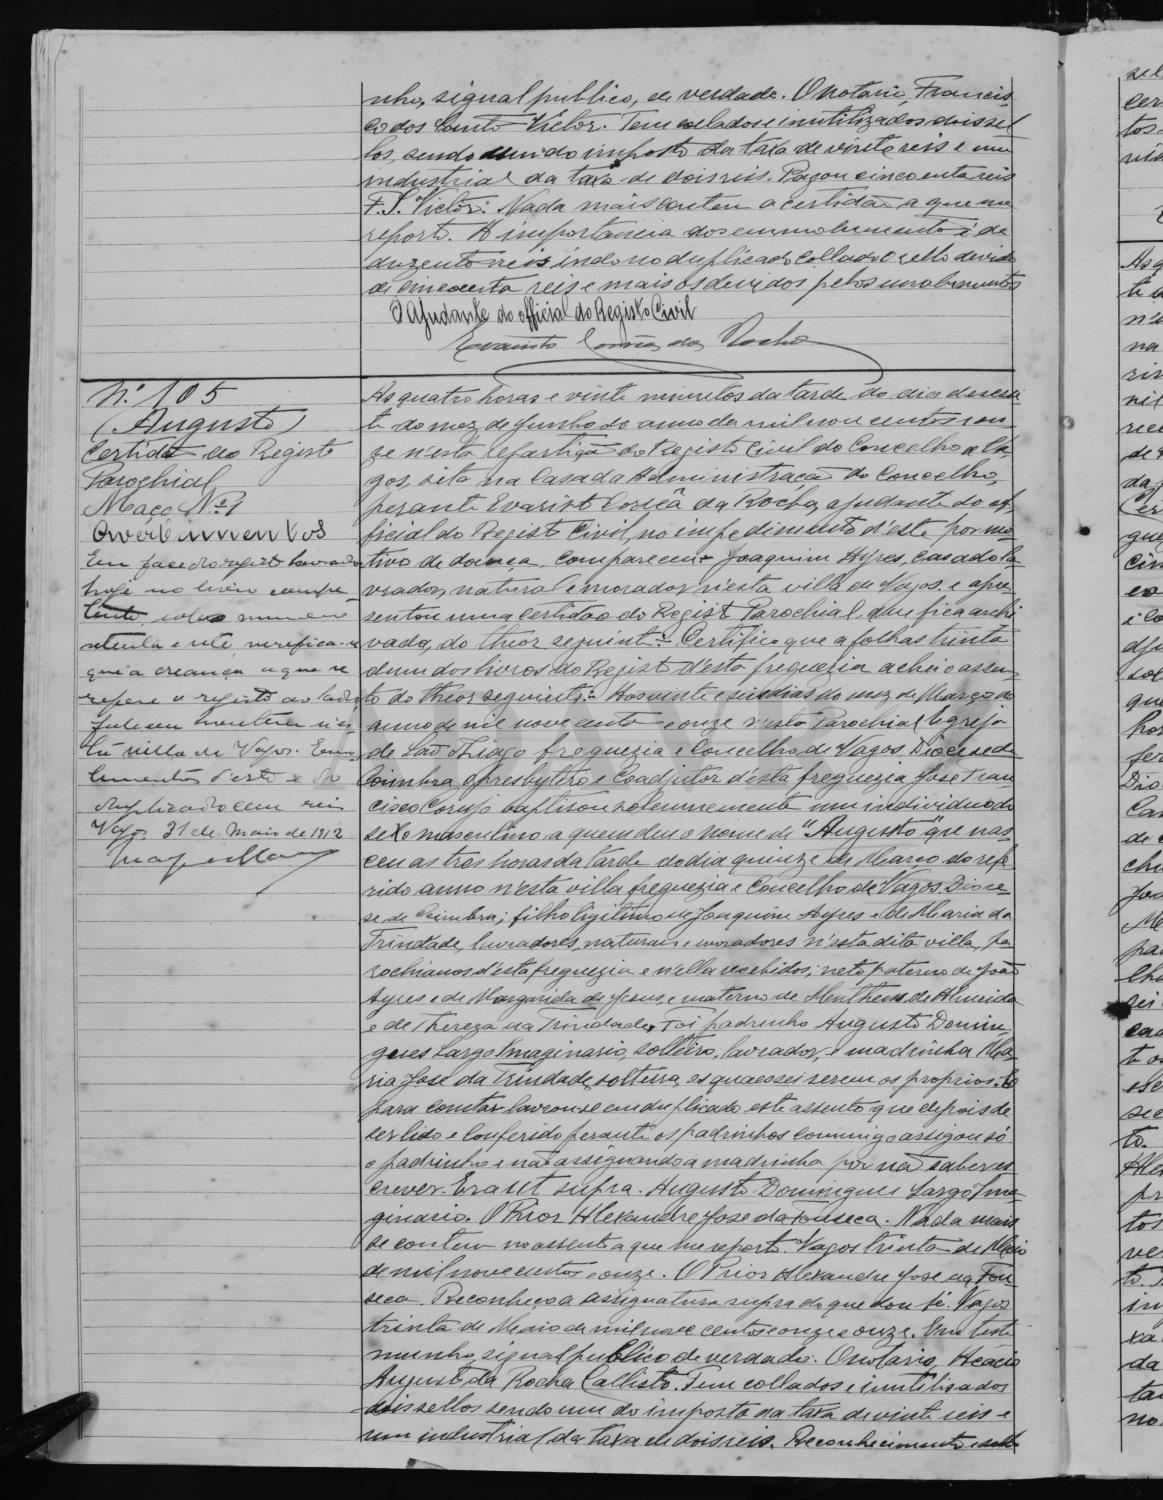 nho, signal publico, de verdade. O notario, Francis
co dos Santos Victor. Tem collados e inutilizados dois sel
los, sendo um do imposto da taxa de vinte reis e um
industrial da taxa de dois reis. Pagou cincoenta reis
F. S. Victor: Nada mais contem a certidão a que me
reporto. A importancia dos emmolumentos é de
duzentos reis indo no duplicado collado o sello devido
de cincoenta reis e mais os devidos pelos emolumentos
O Ajudante do official do Registo Civil
Evaristo Corrêa da Rocha
N.º 105
(Augusto)
Certidão do Registo
Parochial
Maço Nº 1
Averbamentos
Em face do registo lavrado
hoje no livro compe
tente, sob o numero
setenta e sete, verifica-se
que a creança a que se
refere o registo ao lado,
falleceu n'es
ta villa de Vagos. Emo
lumentos d'este e do
duplicado cem reis
Vagos 31 de Maio de 1912
As quatro horas e vinte minutos da tarde do dia desese
te do mez de Junho do anno de mil nove centos e on
ze n'esta Repartição do Registo Civil do Concelho de Va
gos, sita na Casa da Administração do Concelho,
perante Evaristo Corrêa da Rocha, ajudante do of
ficial do Registo Civil, no impedimento d'este por mo
tivo de doença, compareceu = Joaquim Ayres, casado la
vrador, natural e morador n'esta villa de Vagos. e apre
sentou uma certidão do Registo Parochial, que fica archi
vada, do theor seguinte: Certifico que a folhas trinta
d'um dos livros do Registo d'esta freguezia achei o assen
to do theor seguinte: Aos vinte e seis dias do mez de Março do
anno de mil nove centos e onze n'esta Parochial Egreja
de São Thiago freguezia e Concelho de Vagos, Diocese de
Coimbra, o presbytero e Coadjutor d'esta freguezia José Fran
cisco Corujo baptisou solemnemente um individuo do
sexo masculino a quem deu o nome de "Augusto" que nas
ceu as tres horas da tarde do dia quinze de Março do refe
rido anno n'esta villa freguezia e Concelho de Vagos, Dioce-
se de Coimbra; filho ligitimo de Joaquim Ayres e de Maria da
Trindade, lavradores, naturais e moradores n'esta dita villa, pa
rochianos d'esta freguezia e n'ella recebidos; neto paterno de João
Ayres e de Margarida de Jesus, e materno de de Almeida
e de Thereza da Trindade. Foi padrinho Augusto Domin-
gues Largo Imaginario, solteiro, lavrador, e madrinha Ma-
ria José da Trindade, solteira, os quaes sei serem os proprios. E
para constar lavrou-se em duplicado este assento que depois de
ser lido e conferido perante os padrinhos commigo assignou só
o padrinho e não assignando a madrinha por não saber es
crever. Era ut supra. Augusto Domingues Largo Ima-
ginario. O Prior Alexandre José da Fonseca. Nada mais
se contem no assento a que me reporto. Vagos trinta de Maio
de mil nove centos e onze. O Prior Alexandre José da Fon-
seca. Reconheço a assignatura supra do que dou fé. Vagos
trinta de Maio de mil nove centos e onze e onze. Em teste
munho, signal publico de verdade. O notario, Acacio
Augusto da Rocha Callisto. Tem collados e inutilisados
dois sellos sendo um do imposto da taxa de vinte reis e
um industrial da taxa de dois reis. Reconhecimento e sello